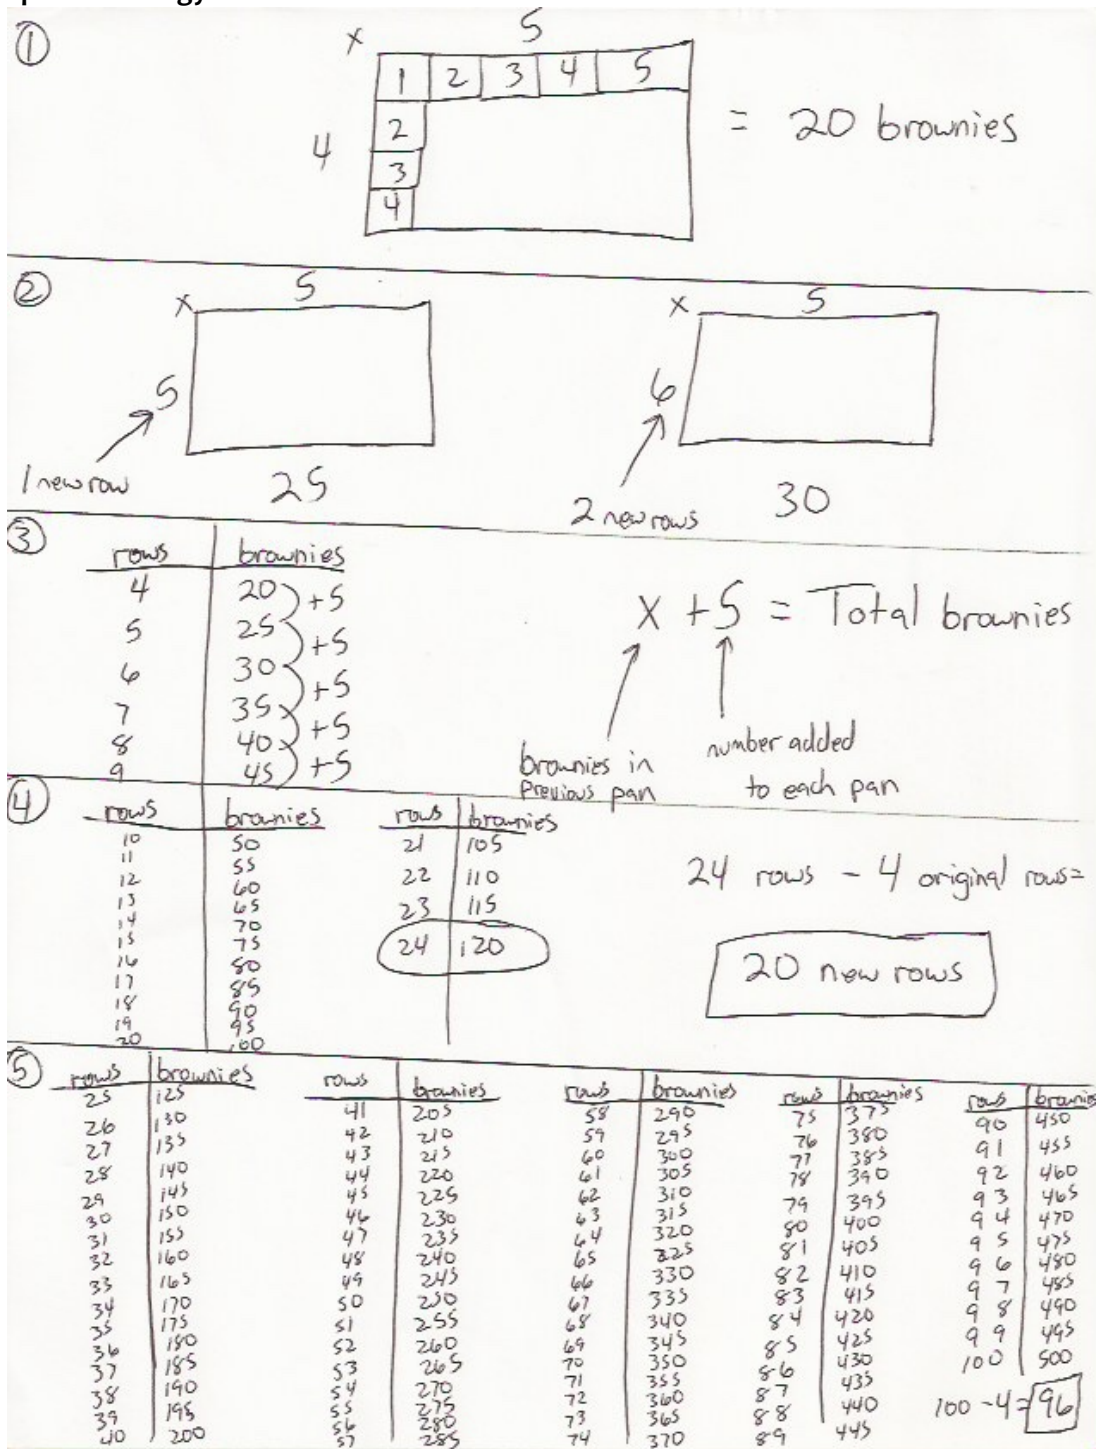 ① x 5
1 2 3 4 5
2
4 = 20 brownies
3
4
② x 5
5
1 new row
25
x 5
6
2 new rows
30
③ rows brownies
4 20
+5
5 25
+5
6 30
+5
7 35
+5
8 40
+5
9 45
x + 5 = Total brownies
brownies in
previous pan
number added
to each pan
④ rows brownies
10 50
11 55
12 60
13 65
14 70
15 75
16 80
17 85
18 90
19 95
20 100
rows brownies
21 105
22 110
23 115
24 120
24 rows - 4 original rows=
20 new rows
⑤ rows brownies
25 125
26 130
27 135
28 140
29 145
30 150
31 155
32 160
33 165
34 170
35 175
36 180
37 185
38 190
39 195
40 200
rows brownies
41 205
42 210
43 215
44 220
45 225
46 230
47 235
48 240
49 245
50 250
51 255
52 260
53 265
54 270
55 275
56 280
57 285
rows brownies
58 290
59 295
60 300
61 305
62 310
63 315
64 320
65 325
66 330
67 335
68 340
69 345
70 350
71 355
72 360
73 365
74 370
rows brownies
75 375
76 380
77 385
78 390
79 395
80 400
81 405
82 410
83 415
84 420
85 425
86 430
87 435
88 440
89 445
rows brownies
90 450
91 455
92 460
93 465
94 470
95 475
96 480
97 485
98 490
99 495
100 500
100 - 4 = 96